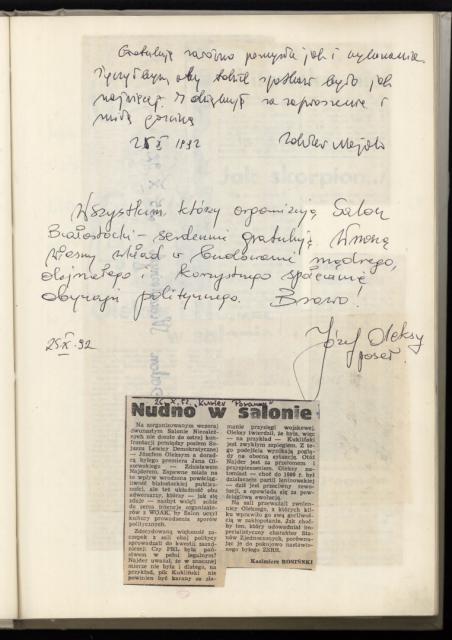 Gratuluję zarówno pomysłu jak i wykonania.
Życzyłbym, aby takich spotkań było jak
najwięcej. Dziękuję za zaproszenie i
miłą gościnę
25 X 1992 Zdzisław Najder
Wszystkim, którzy organizują Salon
Białostocki – serdecznie gratuluję. Wnoszą
własny wkład w budowanie mądrego,
dojrzałego i korzystnego społecznie
obyczaju politycznego. Brawo!
25.X.92 Józef Oleksy
poseł.
26.X.92 "Kurier Poranny"
Nudno w salonie
Na zorganizowanym wczoraj
dwunastym Salonie Niezależ-
nych nie doszło do ostrej kon-
frontacji pomiędzy posłem So-
juszu Lewicy Demokratycznej
— Józefem Oleksym a dorad-
cą byłego premiera Jana Ol-
szewskiego — Zdzisławem
Najderem. Zapewne miała na
to wpływ wrodzona powściąg-
liwość białostockiej publicz-
ności, ale też układność obu
adwersarzy, którzy — jak się
zdaje — nazbyt wzięli sobie
do serca intencje organizato-
rów z WOAK, by Salon uczył
kultury prowadzenia sporów
politycznych.
Zdecydowaną większość za-
czepek z sali obaj politycy
sprowadzali do kwestii zasad-
niczej: Czy PRL była pań-
stwem w pełni legalnym?
Najder uważał, że w znacznej
mierze nie była i dlatego, na
przykład, płk Kukliński nie
powinien być karany za zła-
manie przysięgi wojskowej.
Oleksy twierdził, że była, więc
— na przykład — Kukliński
jest zwykłym szpiegiem. Z te-
go podejścia wynikają poglą-
dy na obecną sytuację. Otóż
Najder jest za przełomem i
przyspieszeniem. Oleksy na-
tomiast — choć do 1989 r. był
działaczem partii leninowskiej
— dziś jest przeciwny rewo-
lucji, a opowiada się za po-
wściągliwą ewolucją.
Na sali przeważali zwolen-
nicy Oleksego, z których kil-
ku wprawiło go swą gorliwoś-
cią w zakłopotanie. Jak choć-
by ten, który udowadniał im-
perialistyczny charakter Sta-
nów Zjednoczonych, porównu-
jąc je do pokojowo nastawio-
nego byłego ZSRR.
Kazimierz ROSIŃSKI